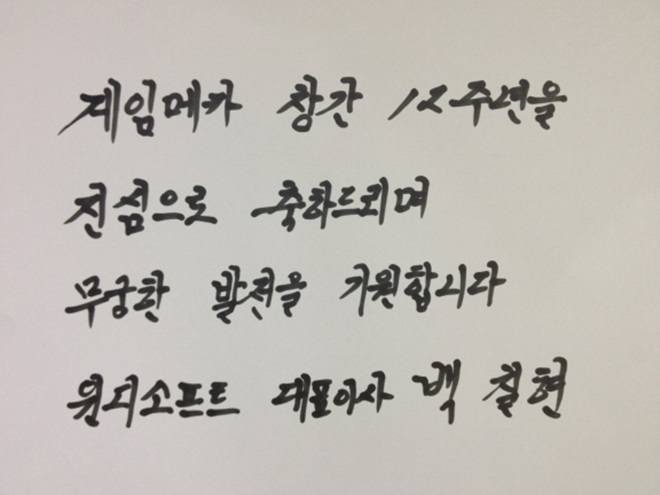 게임메카 창간 12주년을
진심으로 축하드리며
무궁한 발전을 기원합니다
윈디소프트 대표이사 백칠현